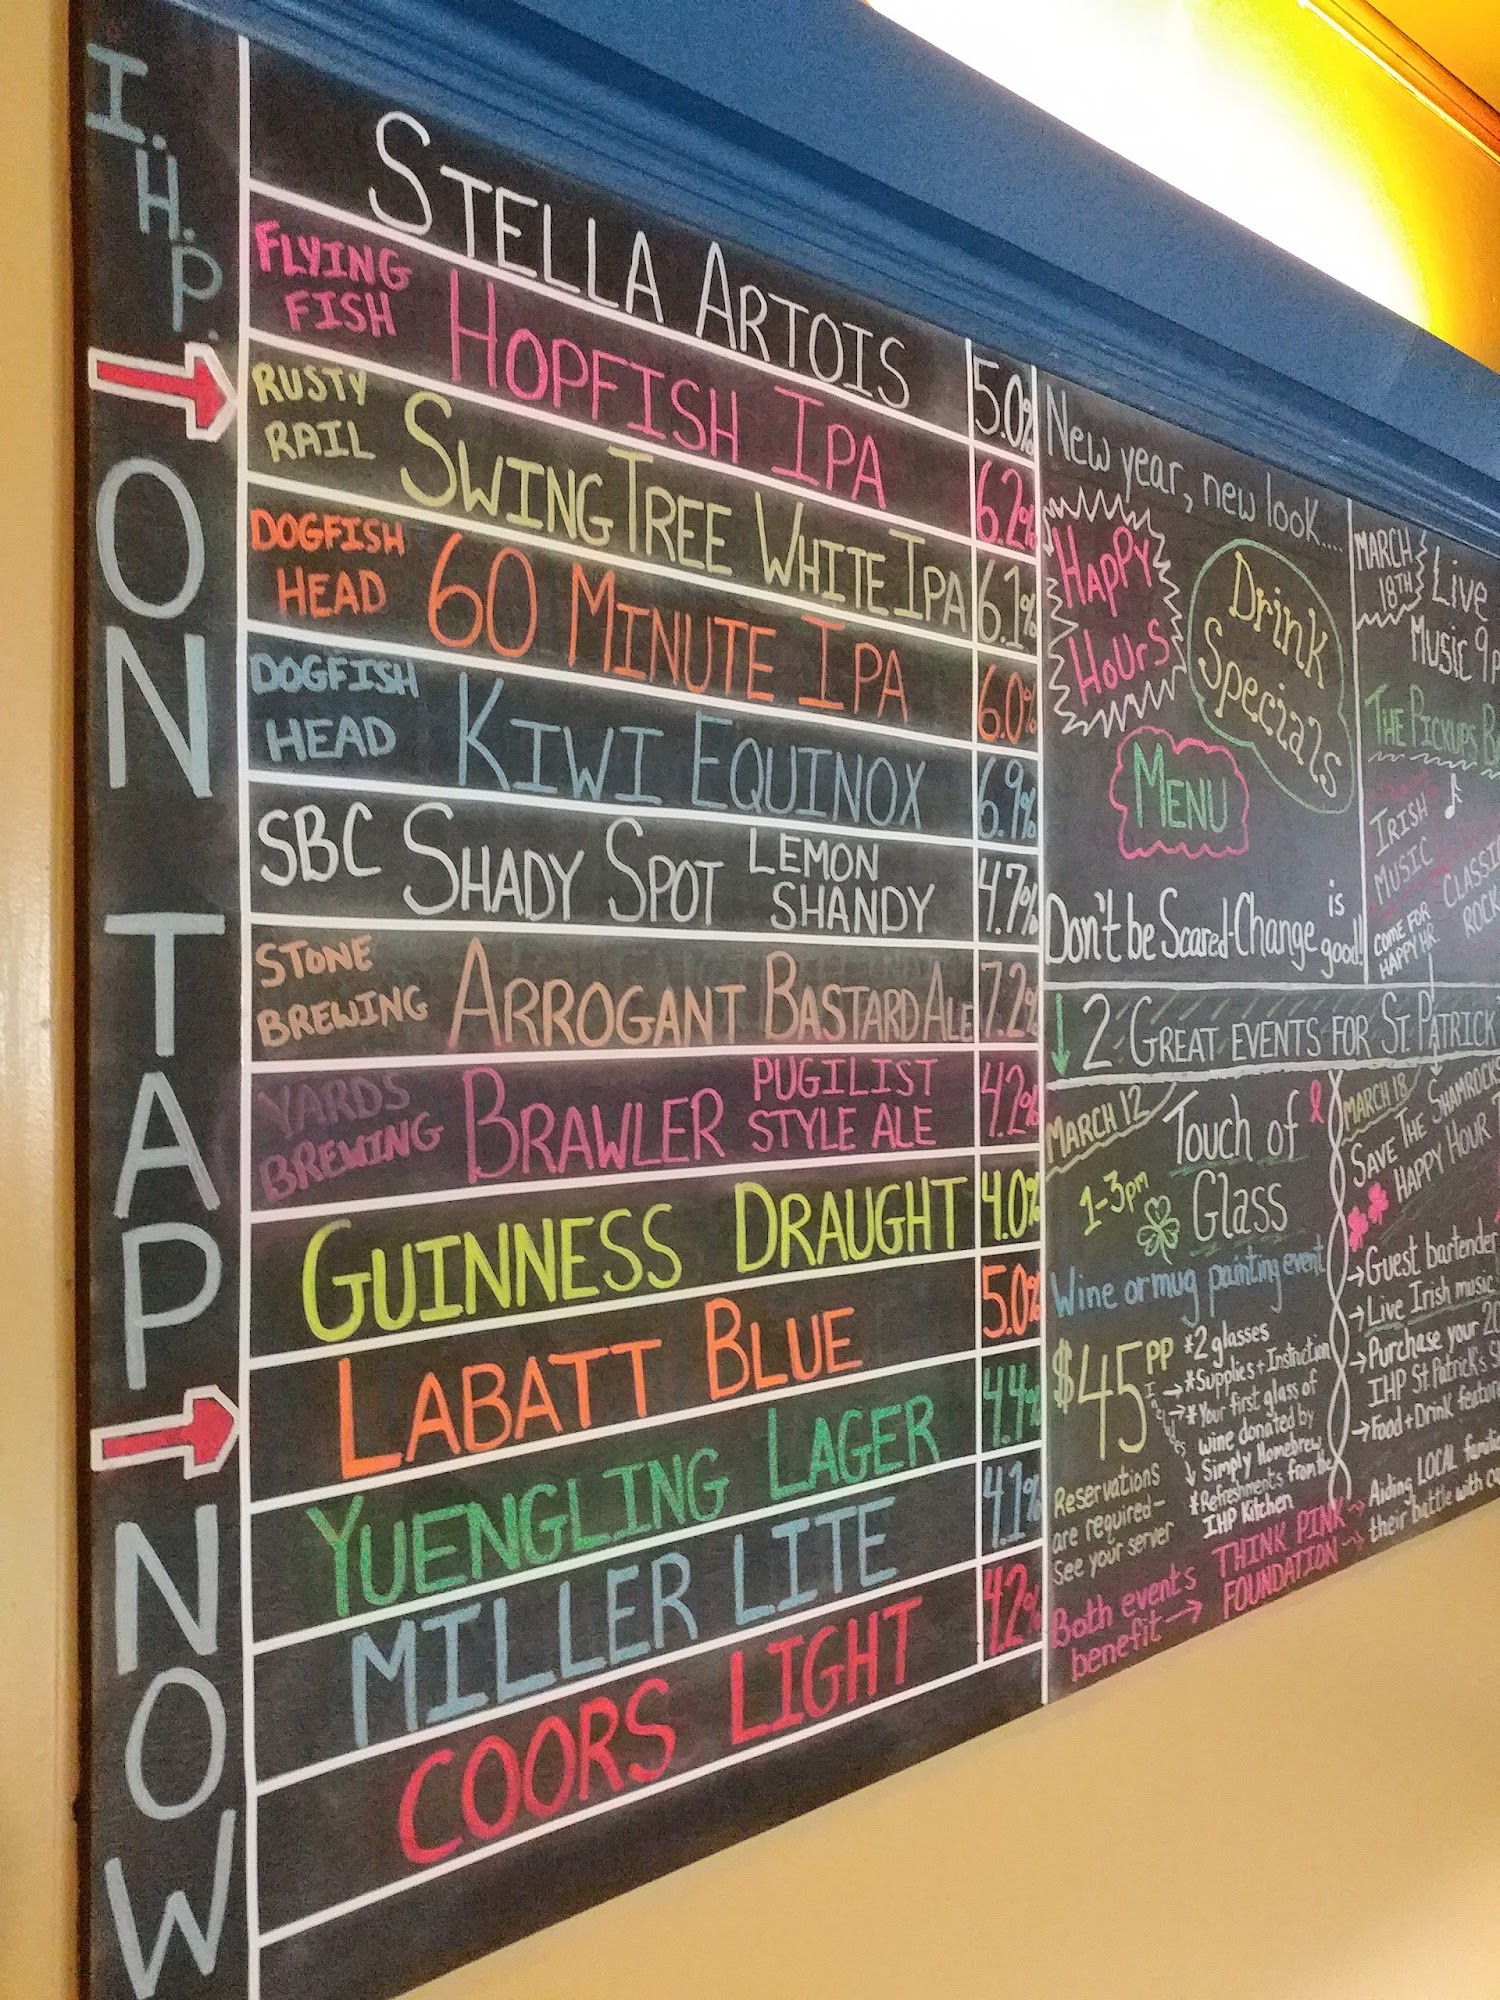 I.H.P.
ON TAP NOW
STELLA ARTOIS 5.0%
FLYING FISH HOPFISH IPA 6.2%
RUSTY RAIL SWING TREE WHITE IPA 6.1%
DOGFISH HEAD 60 MINUTE IPA 6.0%
DOGFISH HEAD KIWI EQUINOX 6.9%
SBC SHADY SPOT LEMON SHANDY 4.7%
STONE BREWING ARROGANT BASTARD ALE 7.2%
YARDS BREWING BRAWLER PUGILIST STYLE ALE 4.2%
GUINNESS DRAUGHT 4.0%
LABATT BLUE 5.0%
YUENGLING LAGER 4.4%
MILLER LITE 4.1%
COORS LIGHT 4.2%
New year, new look....
Happy
Hours
Drink
Specials
MENU
Don't be Scared-Change is good!
MARCH
18TH
Live
Music
THE PICKUPS
IRISH
MUSIC
ROCK
COME FOR
HAPPY HR.
2 GREAT EVENTS FOR ST. PATRICK
MARCH 12
Touch of
Glass
1-3pm
Wine or mug painting event
$45 PP
*2 glasses
*Supplies + Instruction
*Your first glass of
wine donated by
Simply Homebrew
*Refreshments from the
IHP Kitchen
Reservations
are required-
See your server
MARCH 18
SAVE THE SHAMROCKS
HAPPY HOUR
→Guest bartender
→Live Irish music
→Purchase your
IHP St Patrick's
→Food + Drink
Both events
benefit→
THINK PINK
FOUNDATION
Aiding LOCAL
their battle with